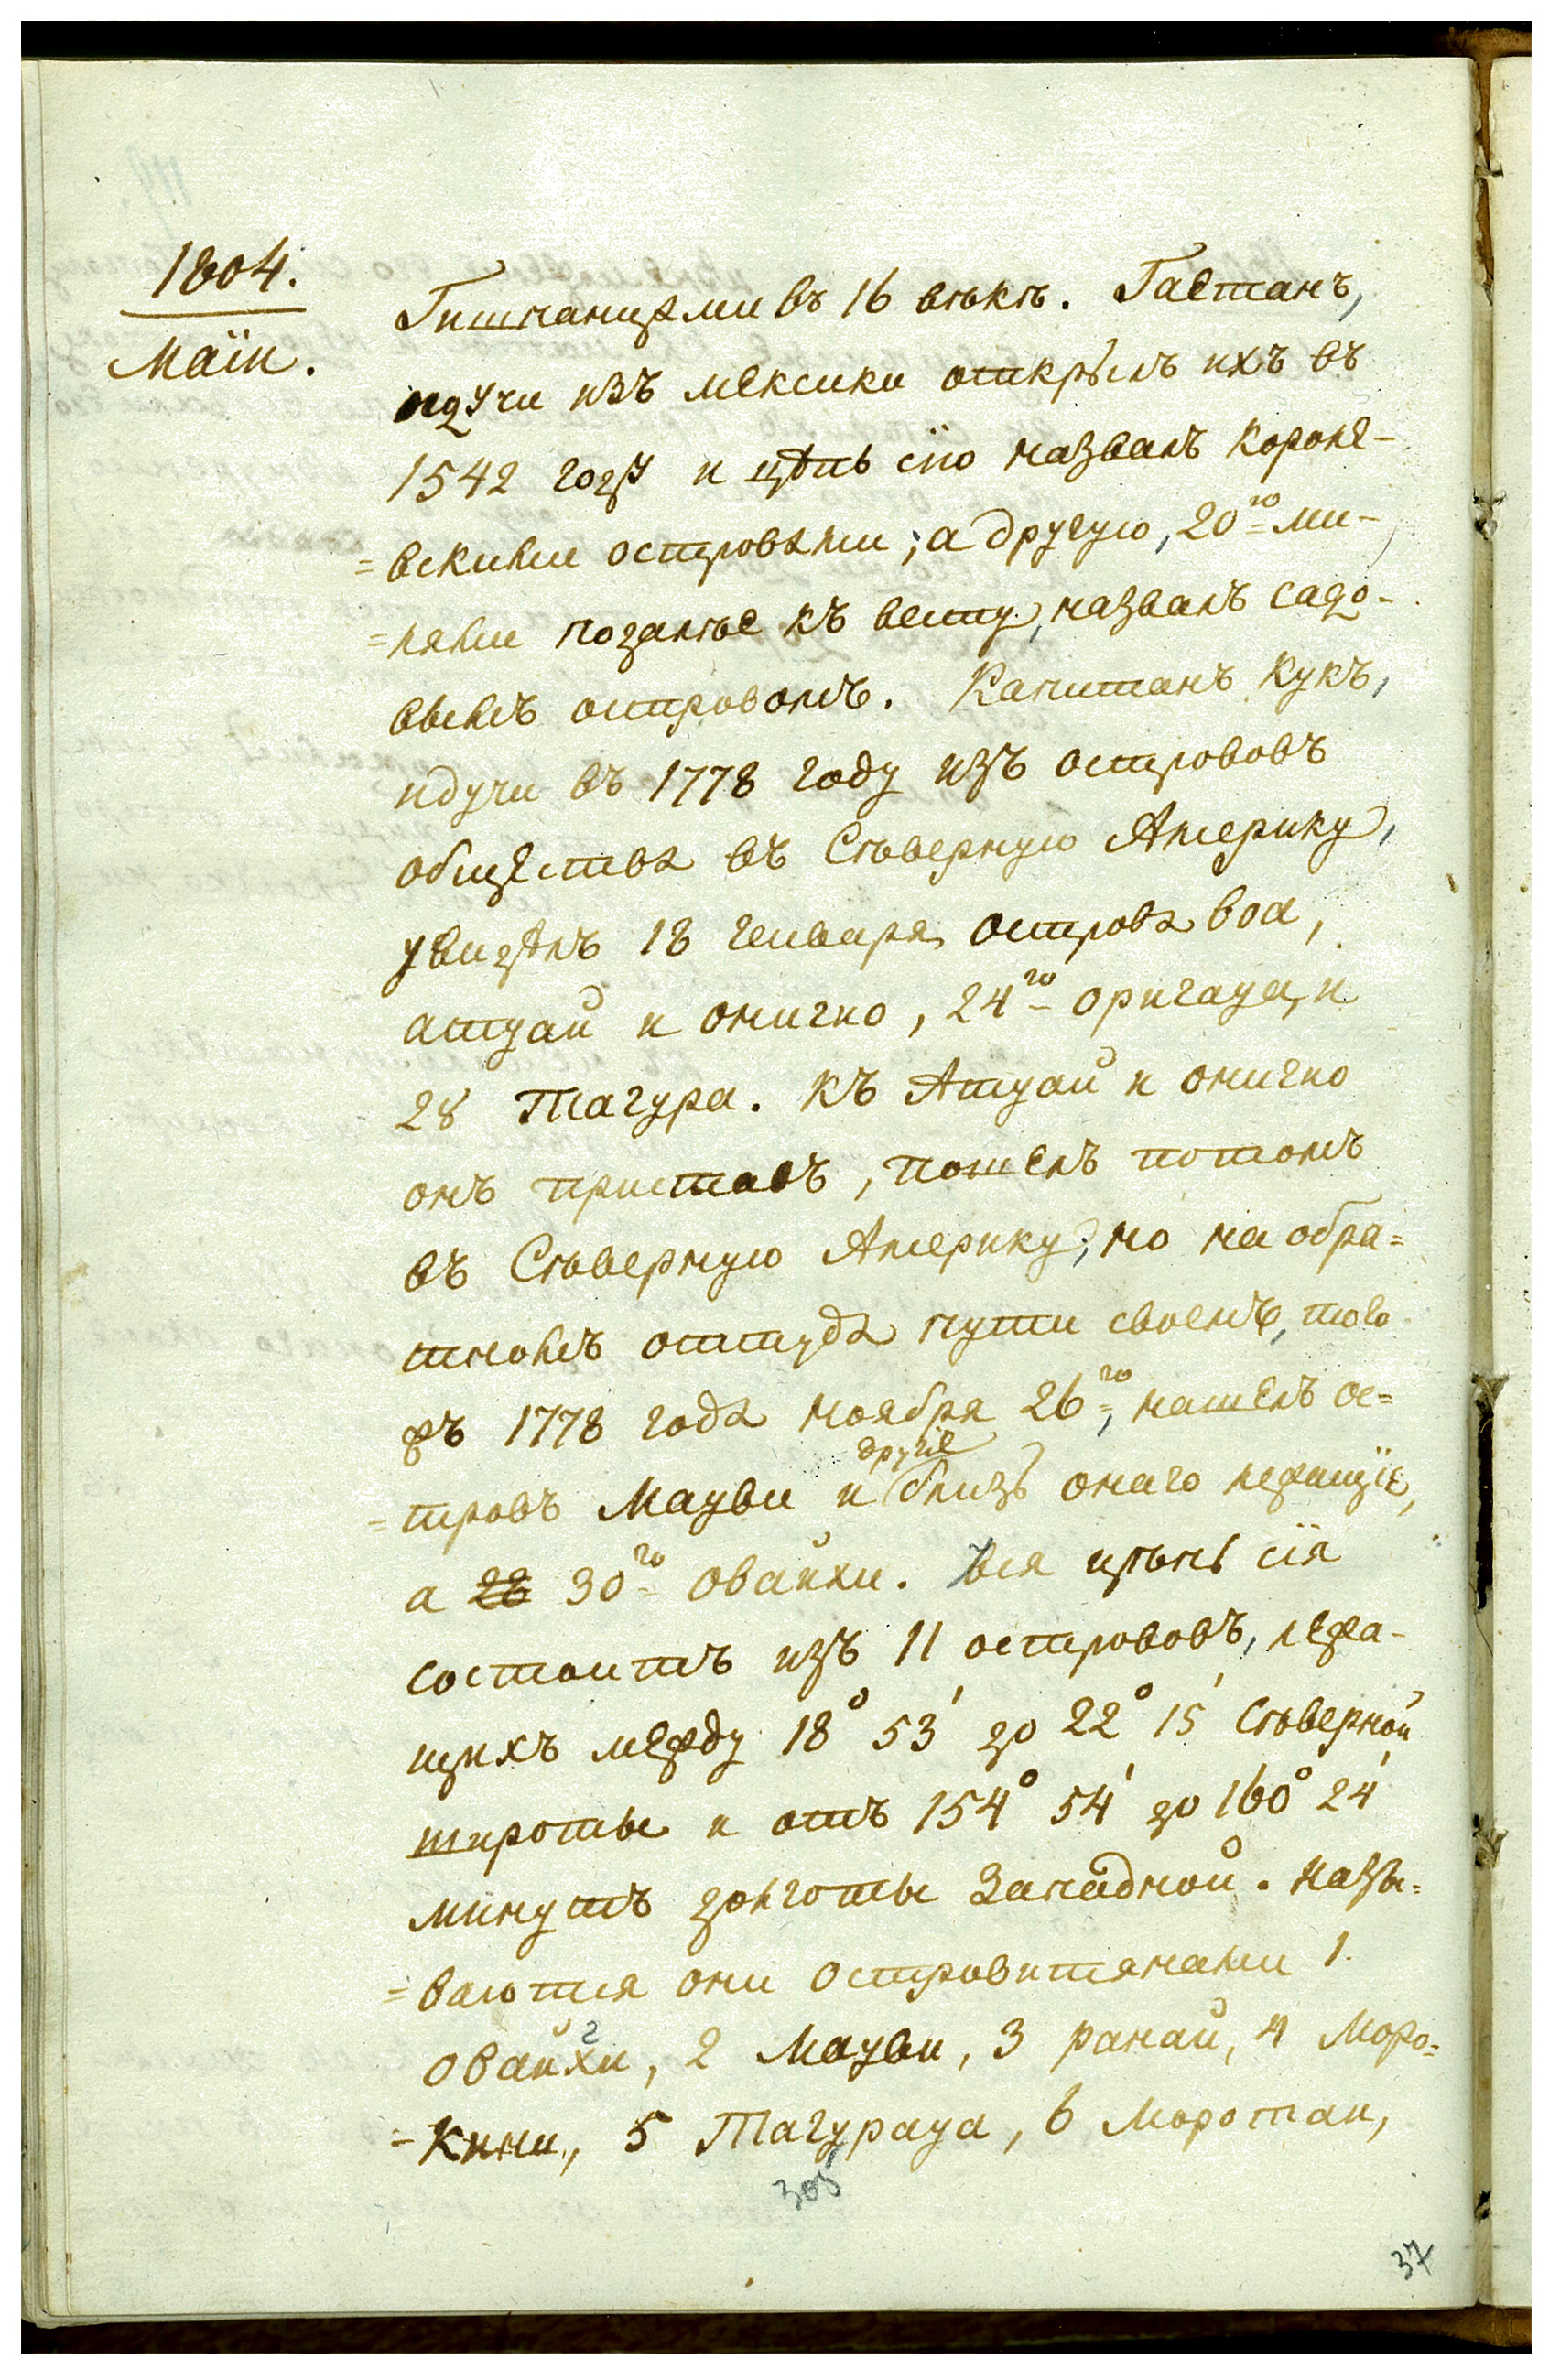 1804.
Маїи.
Гишпанцами въ 16 вѣкѣ. Гаетанъ,
идучи изъ мексики открылъ ихъ въ
1542 году и цѣпь сїю назвалъ короле-
=вскими островами; а другую, 20го= ми-
=лями поданѣе къ весту, назвалъ садо-
вымъ островомъ. Капитанъ Кукъ,
идучи въ 1778 году изъ острововъ
общества въ Сѣверную Америку,
увидѣлъ 18 генваря, острова воа,
атуай и онигио, 24го- оригауа, и
28 Тагура. Къ Атуай и онигио
онъ приставъ, пошелъ потомъ
въ Сѣверную Америку; но на обра=
тномъ оттуда пути своемъ, того
жъ 1778 года ноября 26го=, нашелъ ос=
другїе
=тровъ Мауви и близъ онаго лежащїе,
а 28 30го= овайхи. Вся цѣпь сїя
состоитъ изъ 11 острововъ, лежа-
щихъ между 18° 53' до 22° 15' Сѣверной
широты и отъ 154° 54' до 160° 24'
минутъ долготы Западной. Назы=
=ваются они островитянами 1.
г
овайхи, 2 Мауви, 3 ранай, 4 Моро=
=Кини, 5 Тагурауа, 6 Моротаи,
305
37